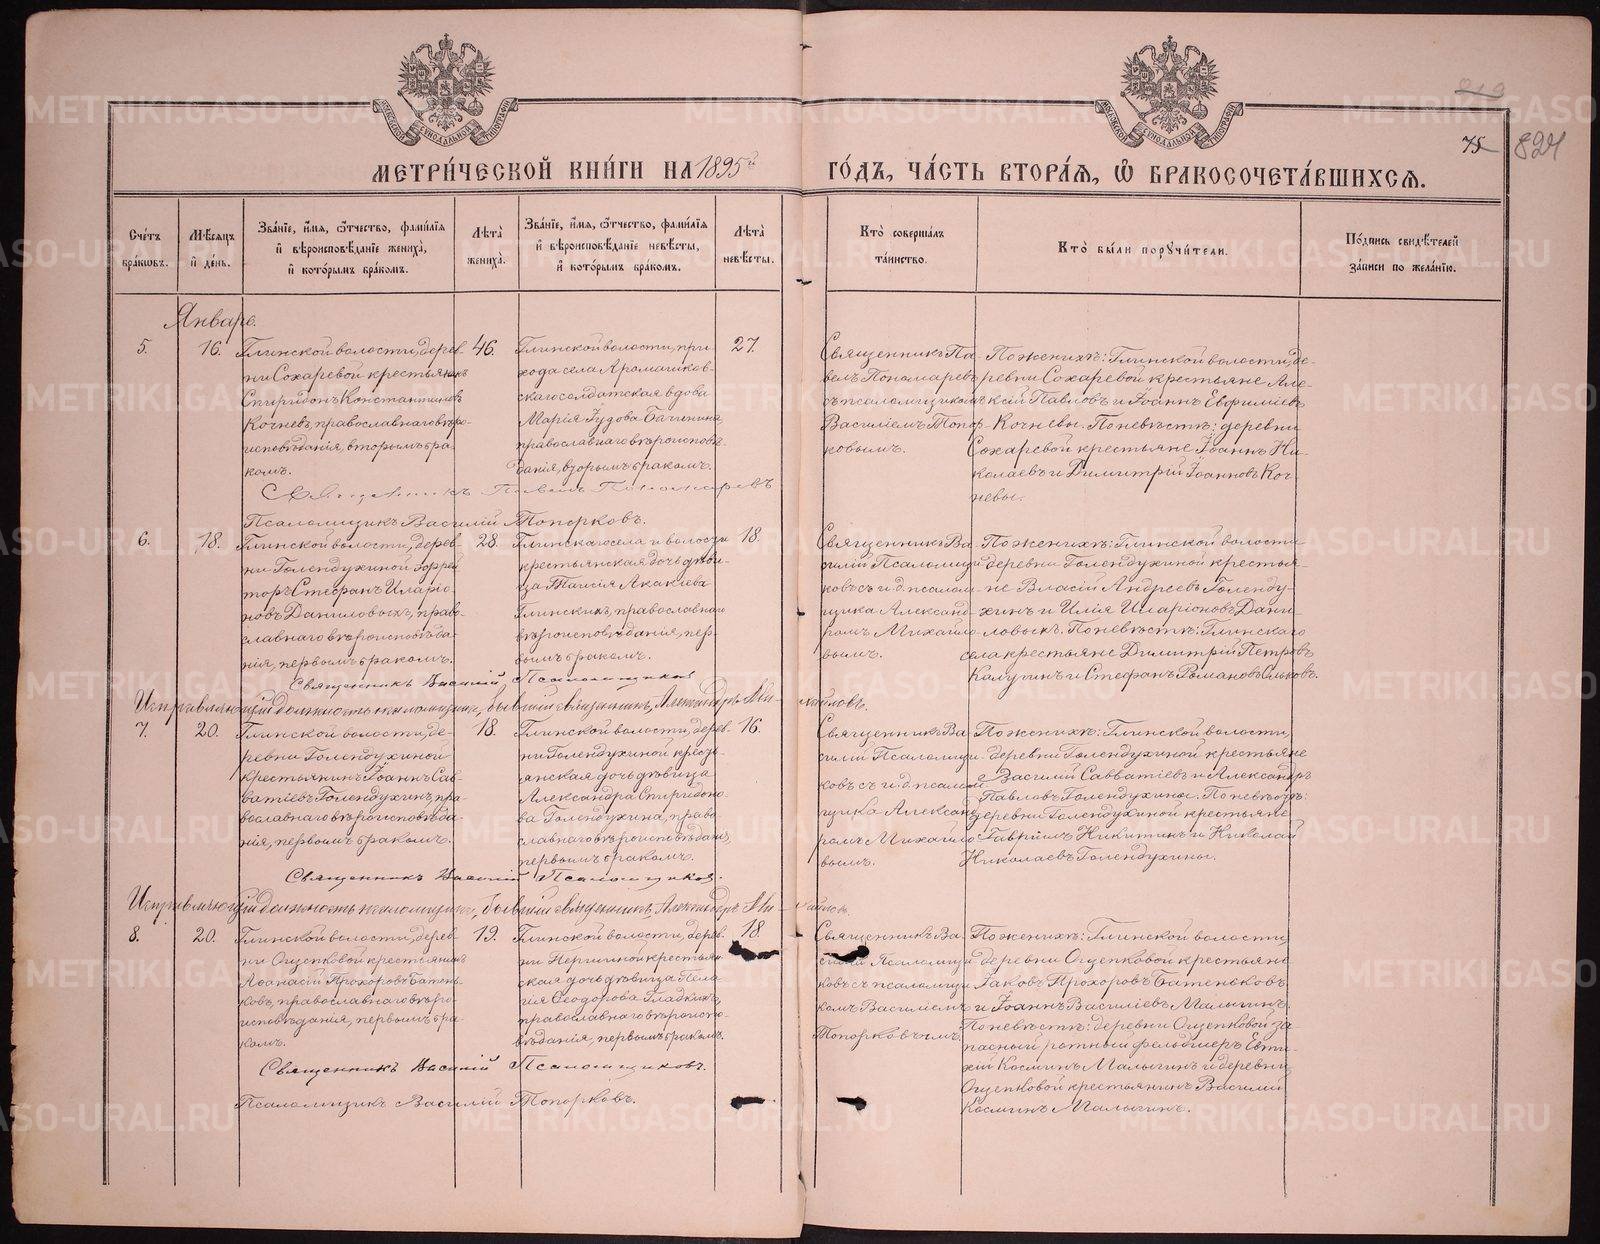 МЕТРИ́ЧЕСКОЙ КНИ́ГИ НА 1895й ГО́ДЪ, ЧА́СТЬ ВТОРА́Ѧ, Ѡ҆ БРАКОСОЧЕТА́ВШИХСѦ.
75
824
Сче́тъ бра́кѡвъ.
Мѣ́сѧцъ и҆ де́нь.
Зва́нїе, и҆́мѧ, ѻ҆́тчество, фами́лїѧ и҆ вѣроисповѣ́данїе жениха̀, и҆ кото́рымъ бра́комъ.
Лѣ́та жениха̀.
Зва́нїе, и҆́мѧ, ѻ҆́тчество, фами́лїѧ и҆ вѣроисповѣ́данїе невѣ́сты, и҆ кото́рымъ бра́комъ.
Лѣ́та невѣ́сты.
Кто̀ соверша́лъ та́инство.
Кто̀ бы́ли порꙋчи́тели.
По́дпись свидѣ́телей за́писи по жела́нїю.
Январь.
5.
16.
Глинской волости, дерев-
ни Сохаревой крестьянинъ
Спиридонъ Константиновъ
Кочневъ, православнаго вѣро-
исповѣданія, вторымъ бра-
комъ.
46.
Глинской волости, при-
хода села Арамашков-
скаго солдатская вдова
Марія Іудова Бачинина,
православнаго вѣроисповѣ-
данія, вторымъ бракомъ.
27.
Священникъ Па-
велъ Пономаревъ
съ псаломщикомъ
Василіемъ Топор-
ковымъ.
По женихѣ: Глинской волости, де-
ревни Сохаревой крестьяне Але-
ксій Павловъ и Іоаннъ Евфиміевъ
Кочневы. По невѣстѣ: деревни
Сохаревой крестьяне Іоаннъ Ни-
колаевъ и Димитрій Іоанновъ Коч-
невы.
Священникъ Павелъ Пономаревъ
Псаломщикъ Василій Топорковъ.
6.
18.
Глинской волости, дерев-
ни Голендухиной Ефрей-
торъ Стефанъ Иларіо-
новъ Даниловыхъ, право-
славнаго вѣроисповѣда-
нія, первымъ бракомъ.
28.
Глинскаго села и волости
крестьянская дочь дѣви-
ца Таисія Акакіева
Глинскихъ, православнаго
вѣроисповѣданія, пер-
вымъ бракомъ.
18.
Священникъ Ва-
силій Псаломщи-
ковъ с и. д. псалом-
щика Александ-
ромъ Михайло-
вымъ.
По женихѣ: Глинской волости
деревни Голендухиной крестья-
не Власій Андреевъ Голенду-
хинъ и Илія Иларіоновъ Дани-
ловыхъ. По невѣстѣ: Глинскаго
села крестьяне Димитрій Петровъ
Калугинъ и Стефанъ Романовъ
Священникъ Василій Псаломщиковъ
Исправляющій должность псаломщика, бывшій священникъ, Александръ Ми-хайловъ.
7.
20.
Глинской волости, де-
ревни Голендухиной
крестьянинъ Іоаннъ Сав-
ватіевъ Голендухинъ, пра-
вославнаго вѣроисповѣда-
нія, первымъ бракомъ.
18.
Глинской волости, дерев-
ни Голендухиной кресть-
янская дочь дѣвица
Александра Спиридоно-
ва Голендухина, право-
славнаго вѣроисповѣданія,
первымъ бракомъ.
16.
Священникъ Ва-
силій Псаломщи-
ковъ с и. д. псалом-
щика Александ-
ромъ Михайло-
вымъ.
По женихѣ: Глинской волости,
деревни Голендухиной крестьяне
Василій Савватіевъ и Александръ
Павловъ Голендухины. По невѣстѣ:
деревни Голендухиной крестьяне
Гавріилъ Никитинъ и Николай
Николаевъ Голендухины.
Священникъ Василій Псаломщиковъ.
Исправляющій должность псаломщика, бывшій священникъ, Александръ Ми-хайловъ.
8.
20.
Глинской волости, дерев-
ни Ощепковой крестьянинъ
Аѳанасій Прохоровъ Батень-
ковъ, православнаго вѣро-
исповѣданія, первымъ бра-
комъ.
19.
Глинской волости, дерев-
ни крестьян-
ская дочь дѣвица Пела-
гія Ѳеодорова Гладкихъ,
православнаго вѣроиспо-
вѣданія, первымъ бракомъ.
18.
Священникъ Ва-
силій Псаломщи-
ковъ съ псаломщи-
комъ Василіемъ
Топорковымъ.
По женихѣ: Глинской волости,
деревни Ощепковой крестьяне
Іаковъ Прохоровъ Батеньковъ
и Іоаннъ Василіевъ Малыгинъ.
По невѣстѣ: деревни Ощепковой за-
пасный ротный фельдшеръ Евти-
хій Космичъ Малыгинъ и деревни
Ощепковой крестьянинъ Василій
Космичъ Малыгинъ.
Священникъ Василій Псаломщиковъ.
Псаломщикъ Василій Топорковъ.
METRIKI.GASO-URAL.RU